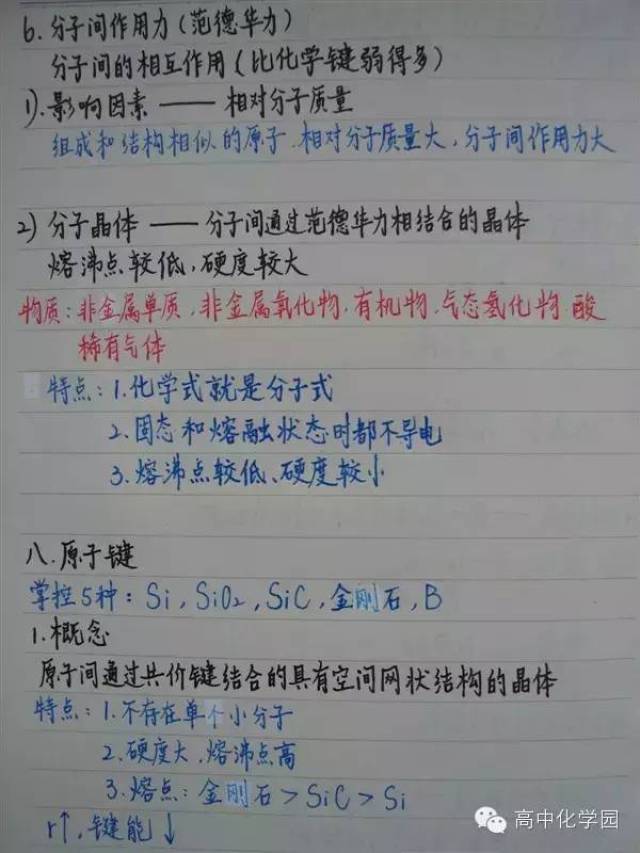 6. 分子间作用力(范德华力)
分子间的相互作用(比化学键弱得多)
1). 影响因素 —— 相对分子质量
组成和结构相似的原子.相对分子质量大,分子间作用力大
2) 分子晶体 —— 分子间通过范德华力相结合的晶体
熔沸点较低,硬度较大
物质:非金属单质,非金属氧化物,有机物,气态氢化物 酸
稀有气体
特点:1.化学式就是分子式
2.固态和熔融状态时都不导电
3.熔沸点较低、硬度较小
八.原子键
掌控5种:Si,SiO₂,SiC,金刚石,B
1.概念
原子间通过共价键结合的具有空间网状结构的晶体
特点:1.不存在单个小分子
2.硬度大,熔沸点高
3.熔点:金刚石>SiC>Si
r↑,键能↓
高中化学园